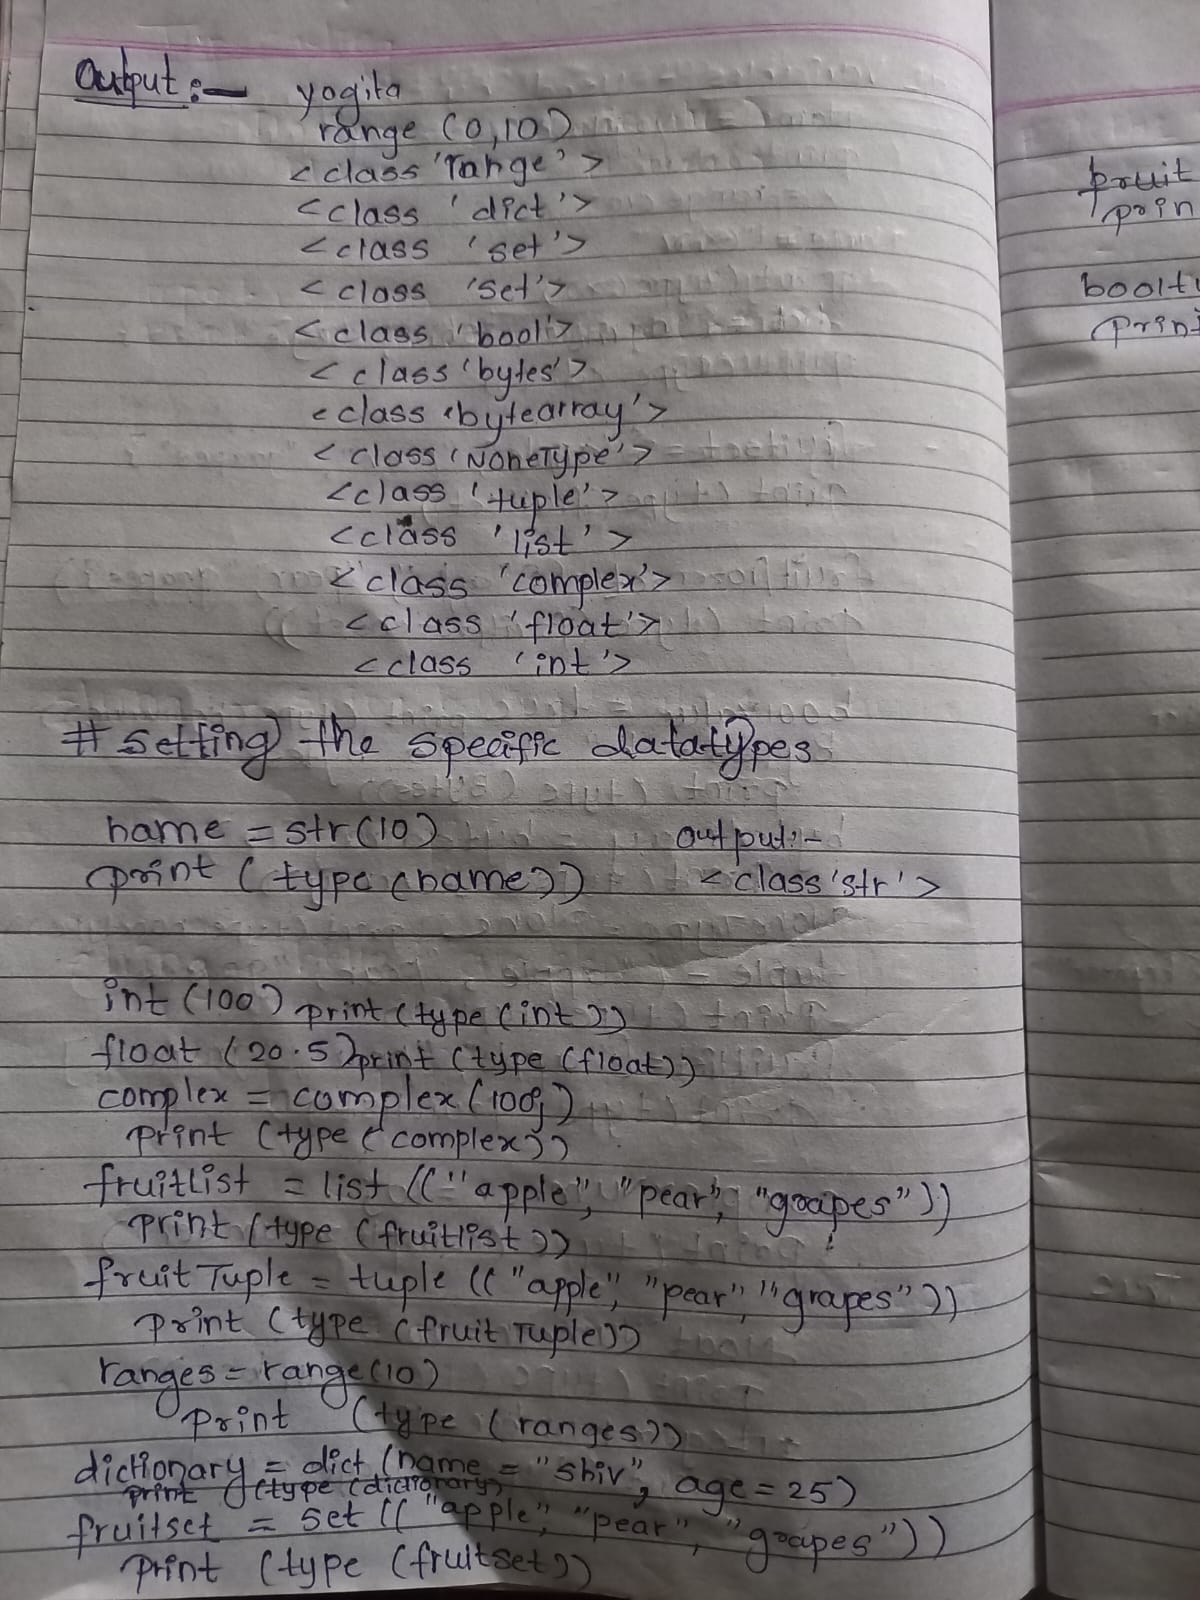 Output :- yogita
range (0,10)
<class 'range'>
<class 'dict'>
<class 'set'>
<class 'set'>
<class 'bool'>
<class 'bytes'>
<class 'bytearray'>
<class 'NoneType'>
<class 'tuple'>
<class 'list'>
<class 'complex'>
<class 'float'>
<class 'int'>
# setting the specific datatypes
name = str(10) output:-
print (type (name)) <class 'str'>
int (100) print (type (int))
float (20.5) print (type (float))
complex = complex (100j)
print (type (complex))
fruitList = list (("apple", "pear", "grapes"))
print (type (fruitlist))
fruit Tuple = tuple (("apple", "pear", "grapes"))
print (type (fruit Tuple))
ranges = range(10)
print (type (ranges))
dictionary = dict (name = "shiv", age = 25)
print (type (dictionary)
fruitset = set (("apple", "pear", "grapes"))
print (type (fruitset))
fruit
prin
boolt
print